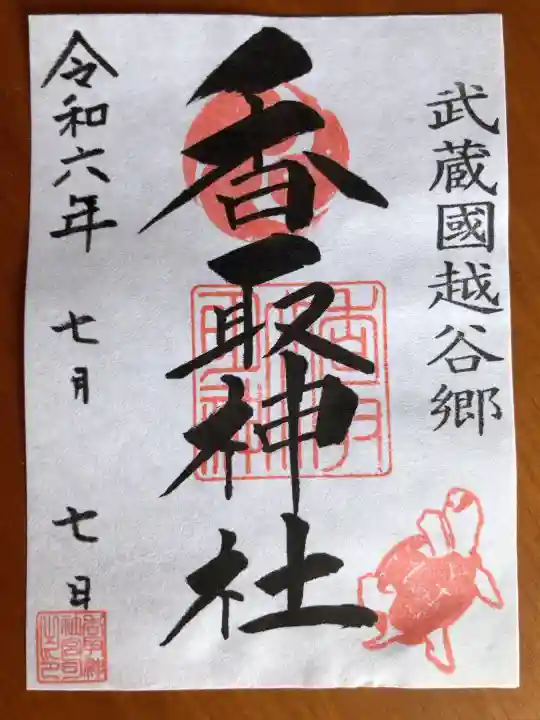 武蔵國越谷郷
香取神社
令和六年 七月 七日